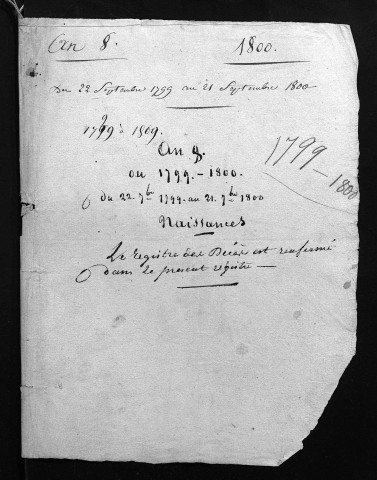 An 8. 1800.
Du 22 Septembre 1799 au 21 Septembre 1800
1799 à 1809.
An 8.
ou 1799.-1800.
du 22 7bre 1799 au 21. 7bre 1800
Naissances
1799
— 1800
Le registre des Décès est renfermé
dans le présent registre —